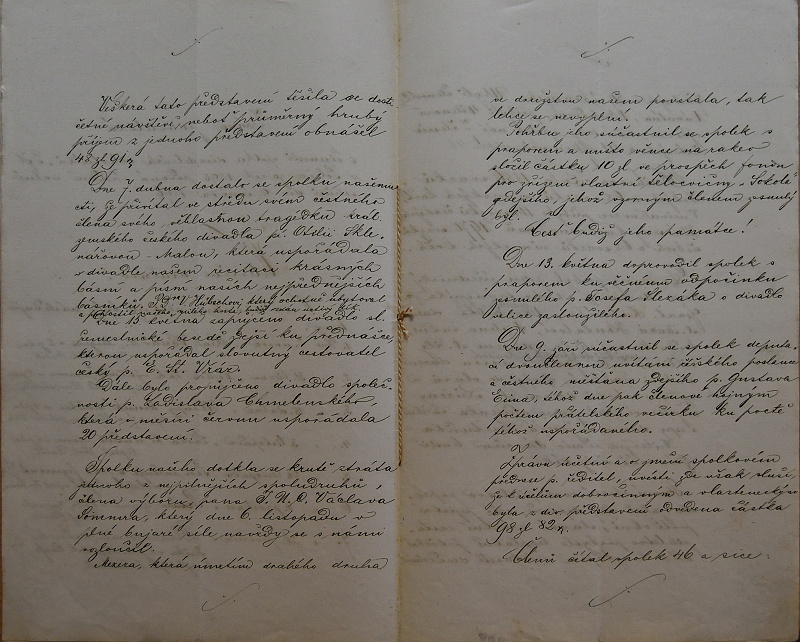 Veškerá tato představení těšila se dosti
četné návštěvě, neboť průměrný hrubý
příjem z jednoho představení obnášel
48 zl 91 k
Dne 7. dubna dostalo se spolku našemu
cti, že přivítal ve středu svém čestného
člena svého, věhlasnou tragedku král.
zemského českého divadla pí. Otilii Skle-
nářovou-Malou, která uspořádala
v divadle našem recitaci krásných
básní a písní našich nejpřednějších
básníků. Panu Hübschovi, který ochotně ubytoval
a pohostil
Dne 15 května zapůjčeno divadlo sl.
řemeslnické besedě zdejší ku přednášce,
kterou uspořádal slovutný cestovatel
český p. E. St. Vráz.
Dále bylo propůjčeno divadlo společ-
nosti p. Ladislava Chmelenského,
která v měsíci červnu uspořádala
20 představení.
Spolku našeho dotkla se krutě ztráta
jednoho z nejpilnějších spoludruhů,
člena výboru, pana J. U. C. Václava
který dne 6. listopadu v
plné bujaré síle navždy se s námi
rozloučil.
Mezera, která úmrtím drahého druha
ve družstvu našem povstala, tak
lehce se nevyplní.
Pohřbu jeho súčastnil se spolek s
praporem a místo věnce na rakev
složil částku 10 zl ve prospěch fondu
pro zřízení vlastní tělocvičny „Sokola"
zdejšího, jehož vzorným členem zesnulý
byl.
Čest budiž jeho památce!
Dne 13. května doprovodil spolek s
praporem ku věčnému odpočinku
zesnulého p. Josefa Slezáka o divadlo
velice zasloužilého.
Dne 9. září súčastnil se spolek deputa-
cí dvoučlennou uvítání říšského poslance
a čestného měšťana zdejšího p. Gustava
Eima, téhož dne pak členové hojným
počtem přátelského večírku ku poctě
téhož uspořádaného.
Zprávu účetní a o jmění spolkovém
přednese p. ředitel, uvésti zde však sluší,
že k účelům dobročinným a vlasteneckým
byla z div. představení odvedena částka
98 zl 82 k.
Členů čítal spolek 46 a sice: